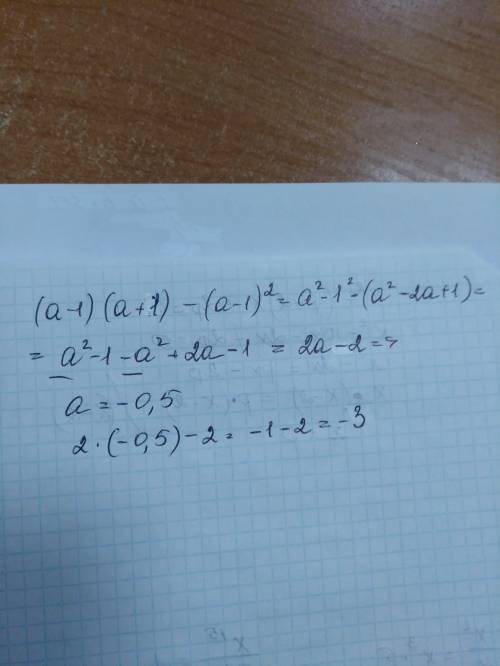 (a-1)(a+1) - (a-1)² = a² - 1² - (a² - 2a + 1) =
= a² - 1 - a² + 2a - 1 = 2a - 2 =>
a = -0,5
2 · (-0,5) - 2 = -1 - 2 = -3